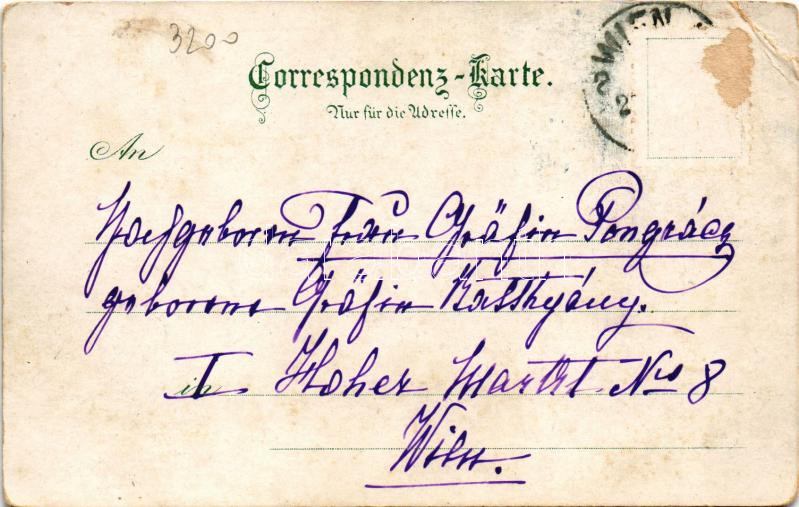 3200
WIEN
2
Correspondenz-Karte.
Nur für die Adresse.
An
Hochgeboren Frau Gräfin Pongrácz
geborene Gräfin Batthyány.
in I Hoher Markt No 8
Wien.